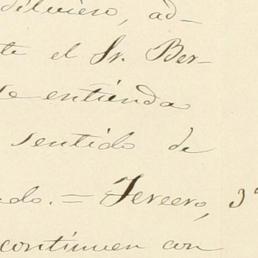 dilviero, ad-
te el Sr. Ber-
se entienda
sentido de
do. = Tercero, 3º
continuen con